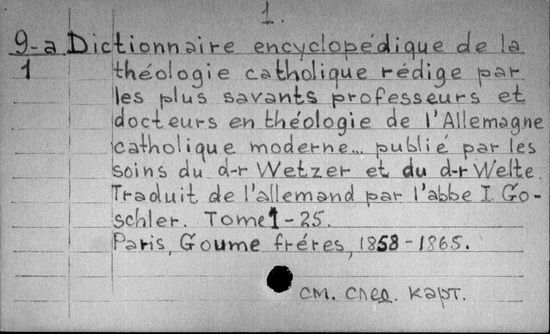 1.
9-a Dictionnaire encyclopédique de la
1 théologie catholique rédige par
les plus savants professeurs et
docteurs en théologie de l'Allemagne
catholique moderne... publié par les
soins du d-r Wetzer et du d-r Welte.
Traduit de l'allemand par l'abbe I. Go-
schler. Tome 1-25.
Paris, Goume fréres, 1858-1865.
см. след. карт.